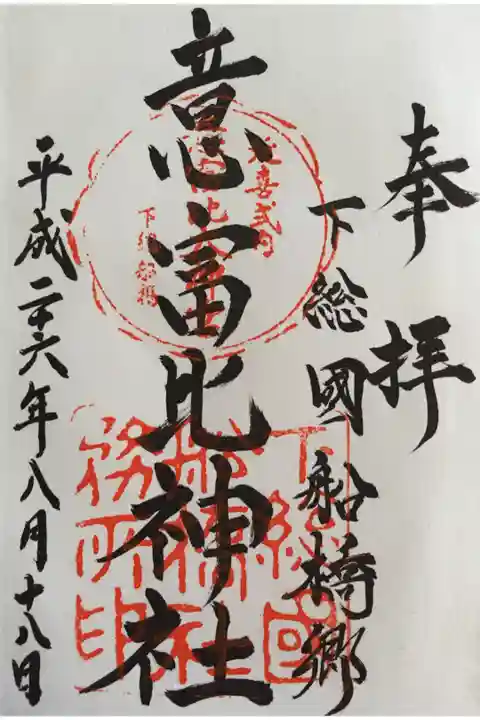 奉拝
下総國船橋郷
意富比神社
平成二十六年八月十八日
延喜式内
下総船橋
下総國
船橋
務所印